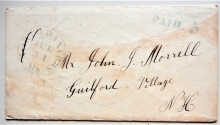 PAID 3
Mr John J. Morrell
Guilford Village
N H